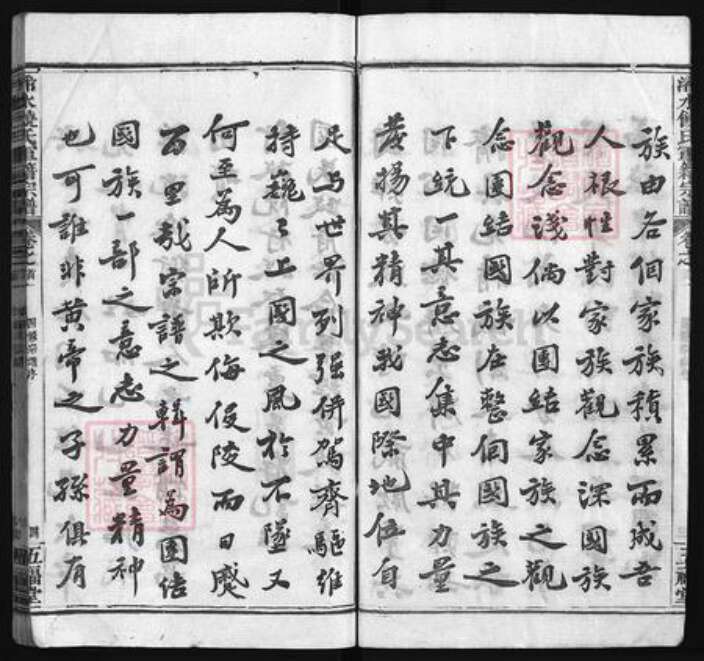 族由各個家族積累而成吾
人根性對家族觀念深國族
觀念淺倘以團結家族之觀
念團結國族在整個國族之
下統一其意志集中其力量
發揚其精神我國際地位自
足与世界列强併駕齊驅維
持巍〻上國之風於不墜又
何至為人所欺侮侵陵而日蹙
百里哉宗譜之輯謂為團結
國族一部之意志力量精神
也可誰非黃帝之子孫俱有
氏重藉宗譜
五福堂
FamilySearch